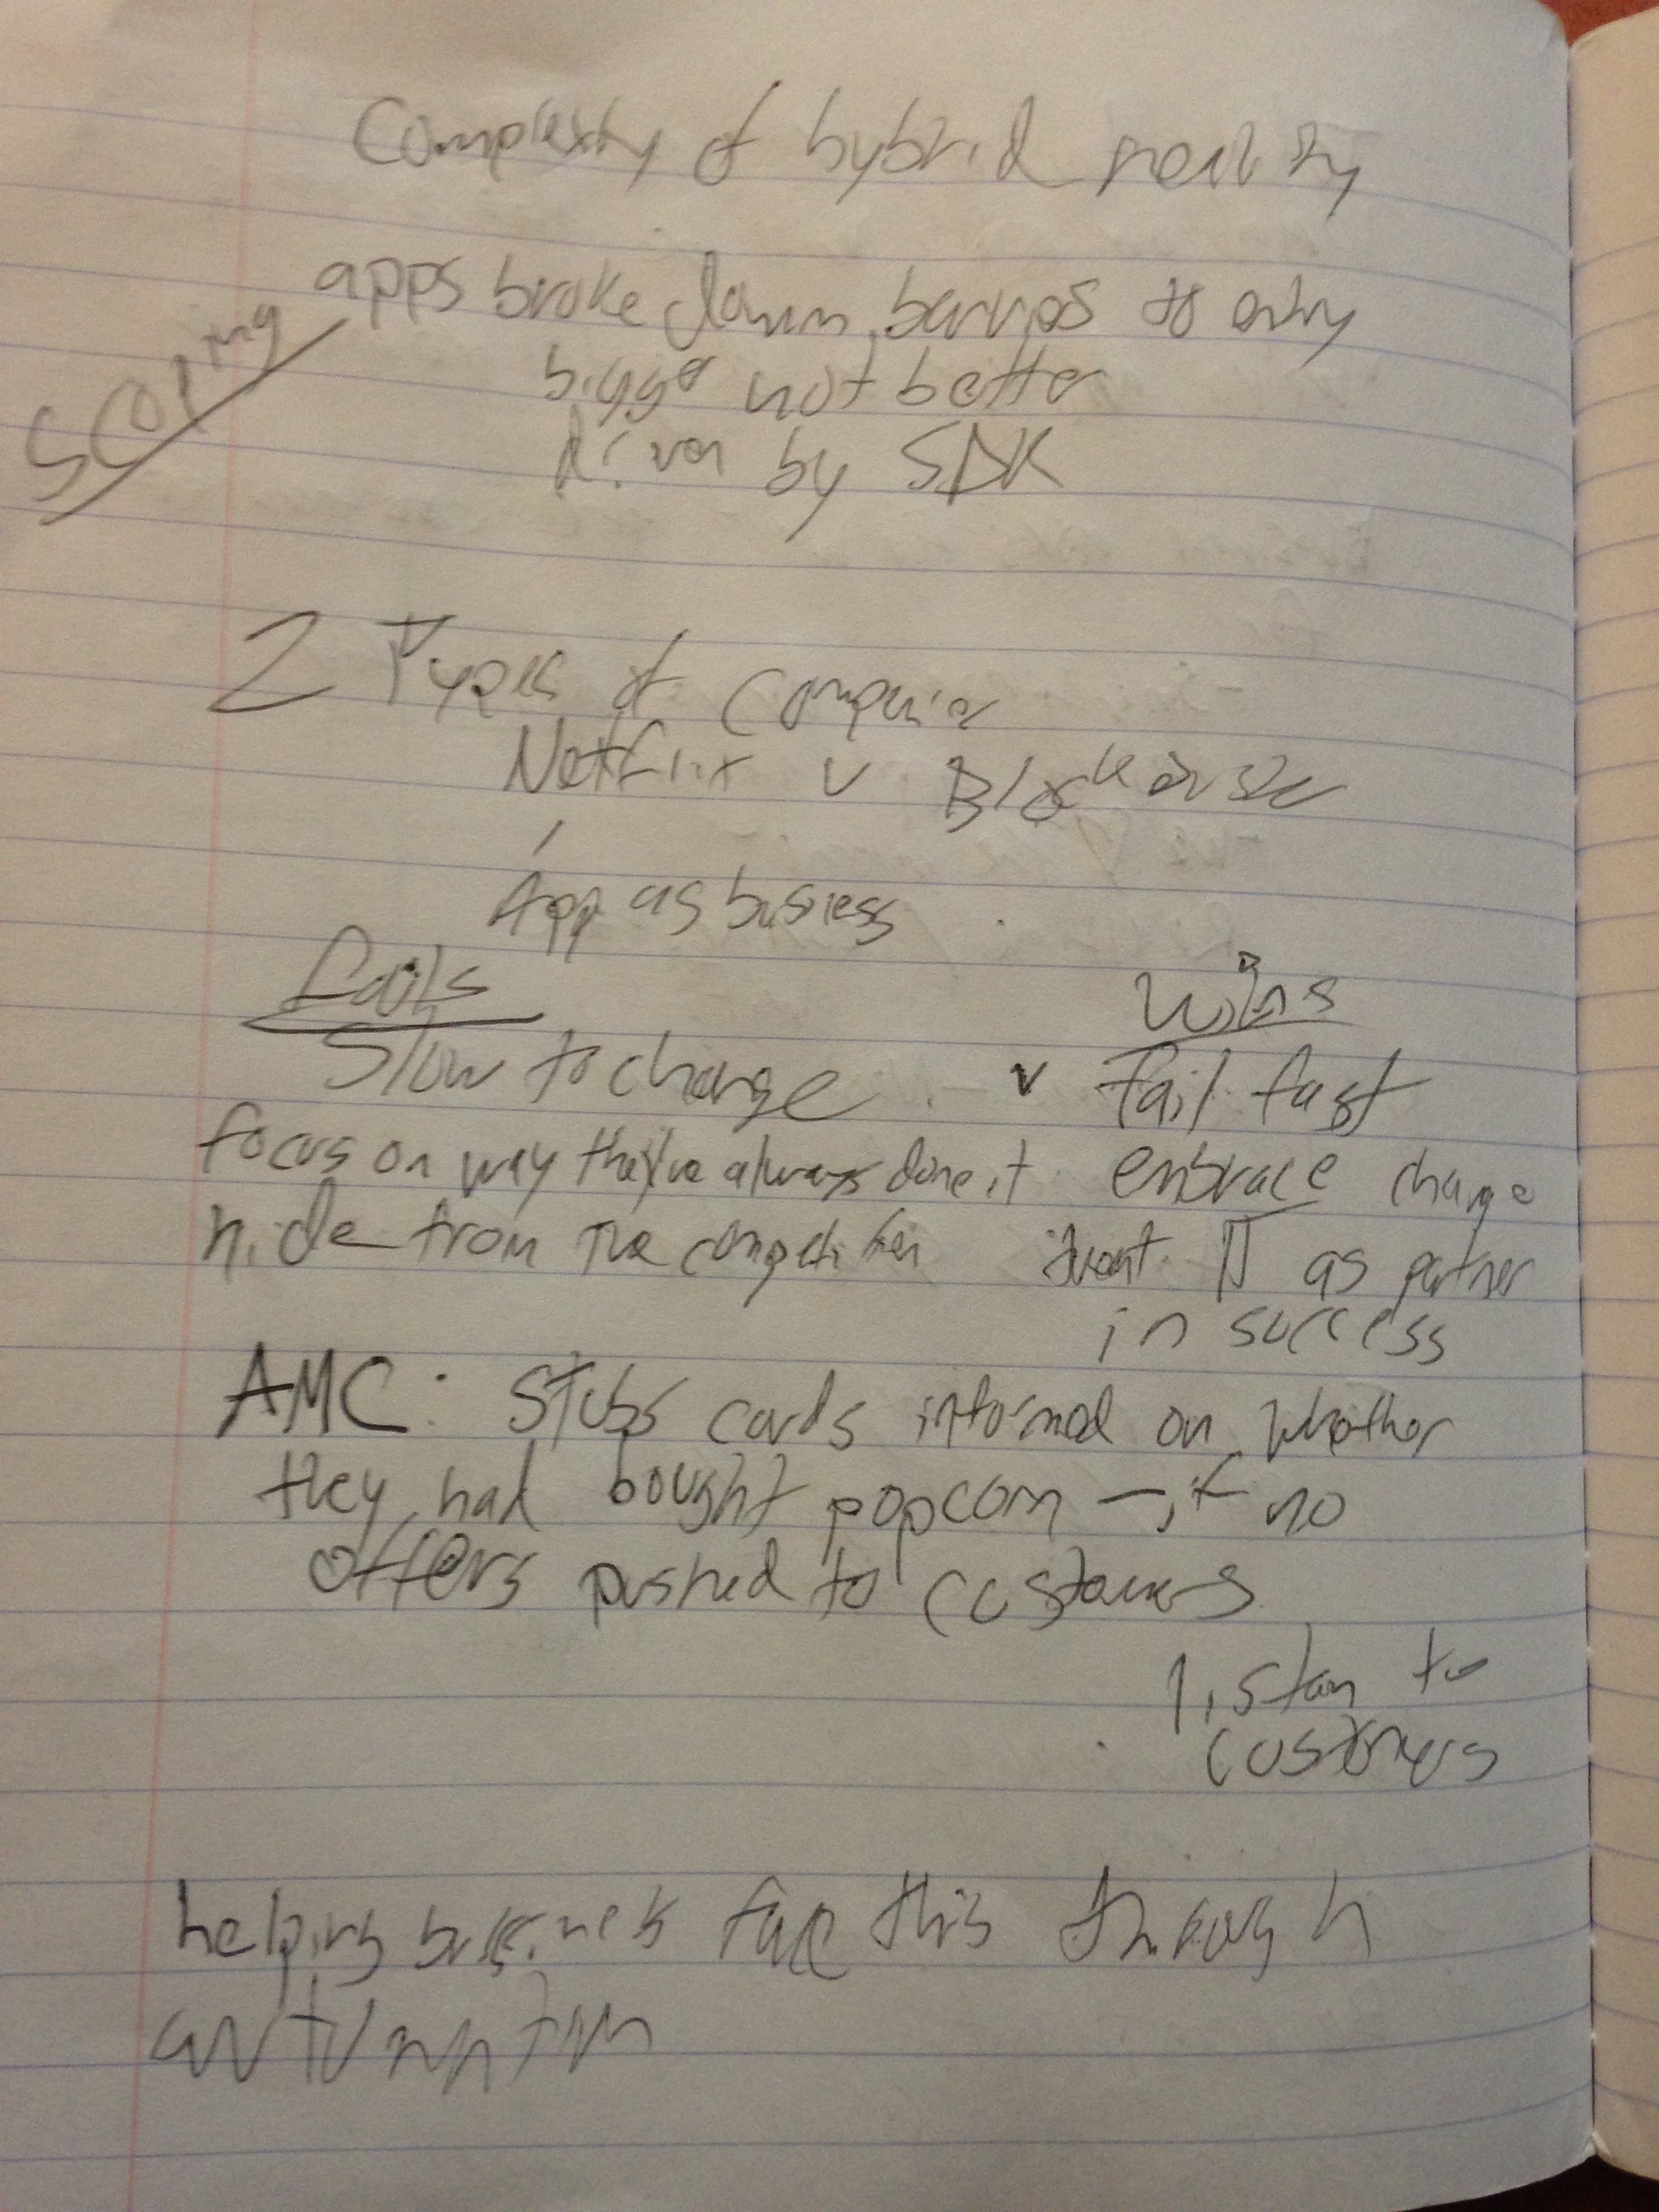 Complexity of hybrid reality
apps broke down barriers to entry
scoping
bigger not better
driven by SDK
2 Types of Companies
Netflix v Blockbuster
App as business
fails
Wins
Slow to change v fail fast
focus on way they've always done it embrace change
hide from the competition treat IT as partner
in success
AMC: Stubs cards informed on whether
they had bought popcorn - if no
offers pushed to customers
listen to
customers
helping business face this through
automation